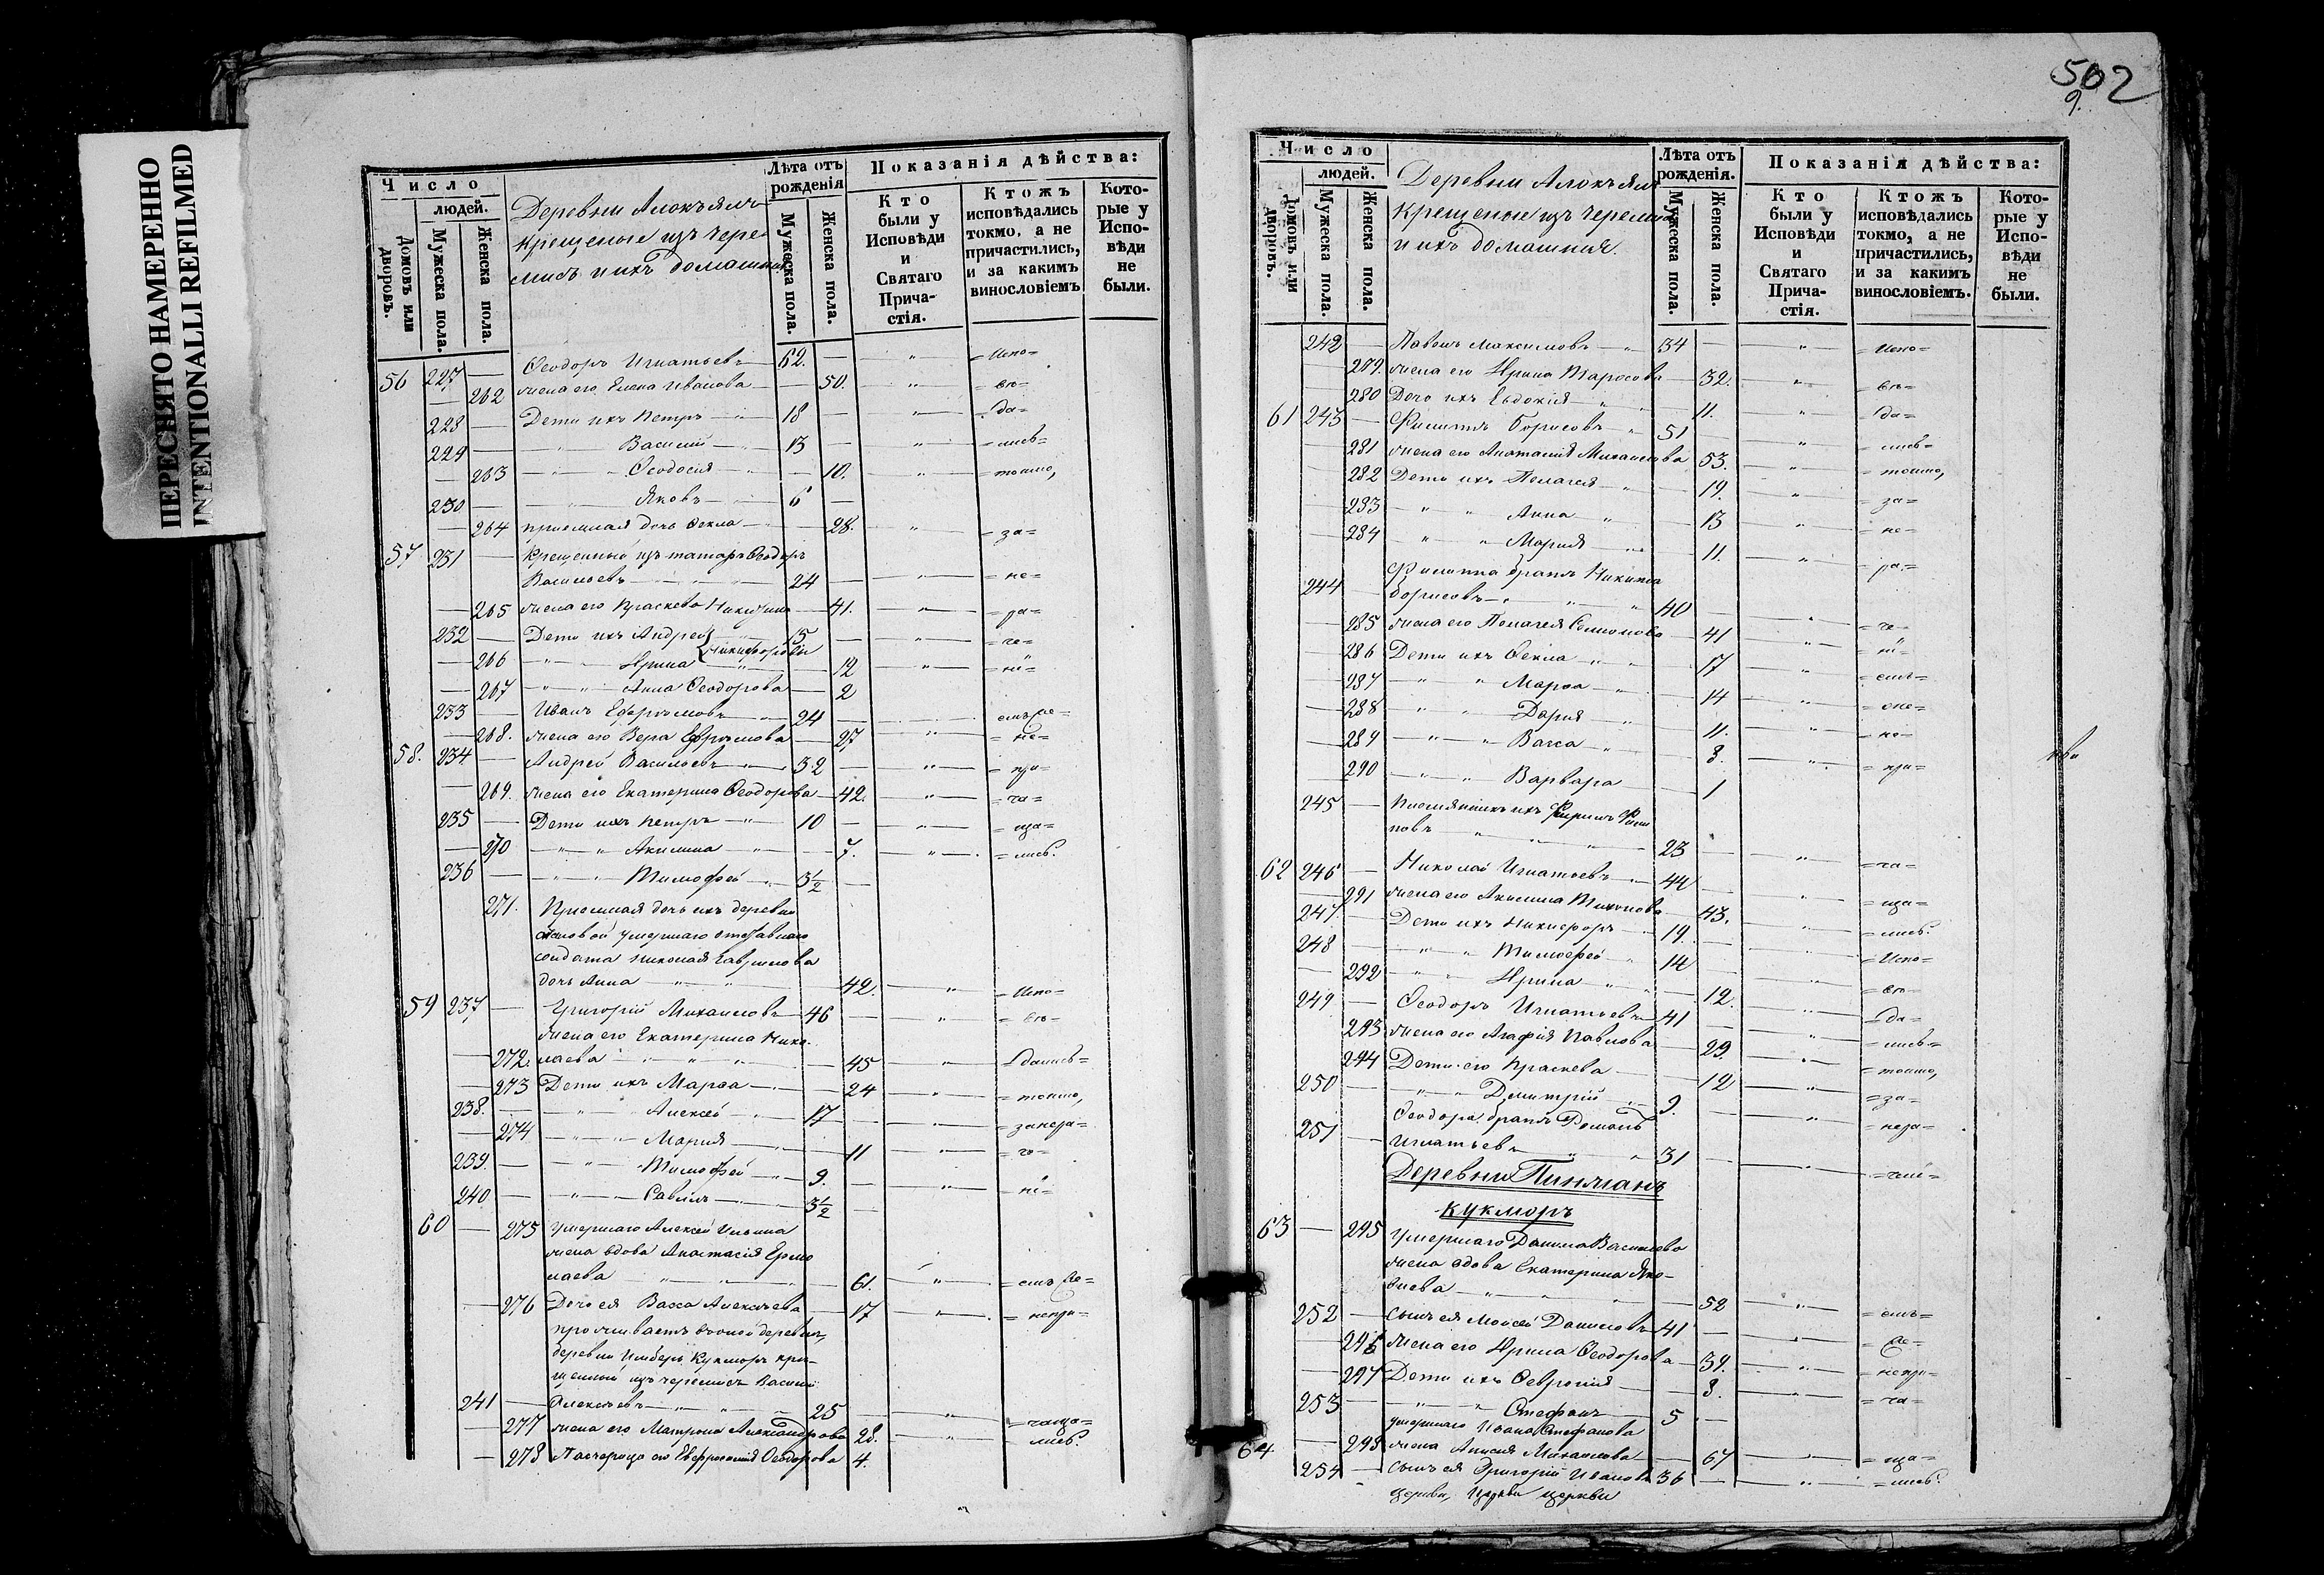 ПЕРЕСНЯТО НАМЕРЕННО
INTENTIONALLI REFILMED
Число
людей.
Домовъ или дворовъ.
Мужеска пола.
Женска пола.
Деревни Алокъялъ
крещеные изъ чере
мисъ и ихъ домашнія
Лѣта отъ рожденія
Мужеска пола.
Женска пола.
Показанія дѣйства:
Кто были у Исповѣди и Святаго Прича-стія.
Ктожъ исповѣдались токмо, а не причастились, и за какимъ винословіемъ
Кото-рые у Испо-вѣди не были.
56 227 — Ѳеодоръ Игнатьевъ 62. — " =Испо=
— 262 жена его Елена Иванова — 50. " =вѣ=
228 — Дети ихъ Петръ 18 — " =да=
229 — " Василий 13 — " =лись=
— 263 " Ѳеодосия — 10. " =токмо,
230 — " Яковъ 6 —
— 264 приемная дочь Ѳекла — 28. " =за=
57 231 — Крещенный изъ татаръ Ѳеодоръ
Васильевъ 24 — " =не=
— 265 жена его Праскева Никитина — 41. " =ра=
232 — Дети ихъ Андрей 15 — " =че=
Никифоровы
— 266 " Ирина — 12 " =ні=
— 267 " Анна Ѳеодорова — 2
233 — Иванъ Ефремовъ 24 —
— 268. жена его Вера Ефремова — 27 " =не=
58. 234 — Андрей Васильевъ 32 — " =при=
— 269. жена его Екатерина Ѳеодорова — 42. " =ча=
235 — Дети ихъ Петръ 10 — " =ща=
— 270 " Акилина — 7. " =лись.
236 — " Тимофей 3½ —
271. Приемная дочь ихъ деревни
умершаго отставнаго
солдата Николая Гаврилова
дочь Анна 42. " =Испо=
59 237 — Григорий Михаиловъ 46 — " =вѣ=
жена его Екатерина Нико-
— 272. лаева — 45 " =дались=
— 273 Дети ихъ Марѳа — 24 " =токмо,
238. — " Алексей 17 — " =занера=
— 274 " Мария — 11 " =че=
239. — " Тимофей 9. — " =ні=
240 — " Савилъ 3½ —
60 — 275 Умершаго Алексея Ильина
жена вдова Анастасия Ермо
лаева — 61. "
— 276 Дочь ея Васса Алексеева — 17 " =непри=
проживаетъ въ оной деревни,
деревни Имберъ Кукморъ кре-
щеный изъ черемисъ Василий
241 — Алексеевъ 25 — " =чаща=
— 277 жена его Матрона Александрова 28. " =лись.
— 278 Падчерица его Евфросиния Ѳеодорова 4.
502
9.
Число
людей.
Домовъ или дворовъ.
Мужеска пола.
Женска пола.
Деревни Алокъялъ
крещеные изъ черемисъ
и ихъ домашнія.
Лѣта отъ рожденія.
Мужеска пола.
Женска пола.
Показанія дѣйства:
Кто были у Исповѣди и Святаго Прича-стія.
Ктожъ исповѣдались токмо, а не причастились, и за какимъ винословіемъ.
Кото-рые у Испо-вѣди не были.
242 — Павелъ Максимовъ 34 — " =Испо=
— 279. жена его Ирина Тарасова — 32. " =вѣ=
280 Дочь ихъ Евдокия — 11. " =да=
61 243 — Филиппъ Борисовъ 51 — " =лись=
281 жена его Анастасия Михаилова 53. " =токмо,
282 Дети ихъ Пелагея — 19. " =за=
283 " Анна — 13 " =не=
284 " Мария — 11. " =ра=
Филиппа братъ Никита
244 — Борисовъ 40 — " =че=
285 жена его Пелагея Семионова — 41 " =ні=
286 Дети ихъ Ѳекла — 17 " =емъ=
287 " Марѳа — 14 "
288 " Дария — 11. " =не=
289 " Васса — 8. " =при=
290 " Варвара — 1
245 — Племянникъ ихъ Филип
повъ 23 — " =ча=
62 246 — Николай Игнатьевъ 44 — " =ща=
— 291 жена его Акилина Тихонова — 43. " =лись.
247 — Дети ихъ Никифоръ 19. — " =Испо=
248 — " Тимофей 14 —
— 292 " Ирина — 12. " =вѣ=
249 — Ѳеодоръ Игнатьевъ 41 — " =да=
— 293 жена его Агафия Павлова — 29 " =лись=
— 294 Дети его Праскева — 12 " =токмо,
250 — " Димитрий 9. — " =за=
Ѳеодора братъ Романъ
251 — Игнатьевъ 31 — " =нера=
Деревни Пинжанъ
Кукморъ
63 — 295 Умершаго Данила Васильева
жена вдова Екатерина Яко-
влева — 52 " =емъ=
252 — Сынъ ея Моисей Даниловъ 41 — "
— 296 жена его Ирина Ѳеодорова — 39. " =непри=
— 297 Дети ихъ Феврония — 8. " =ча=
253 — " Стефанъ 5 —
умершаго Ивана Стефанова
64 — 298 жена Анисия Михаилова — 67 " =ща=
254 — Сынъ ея Григорий Ивановъ 36 — " =лись.
церкви